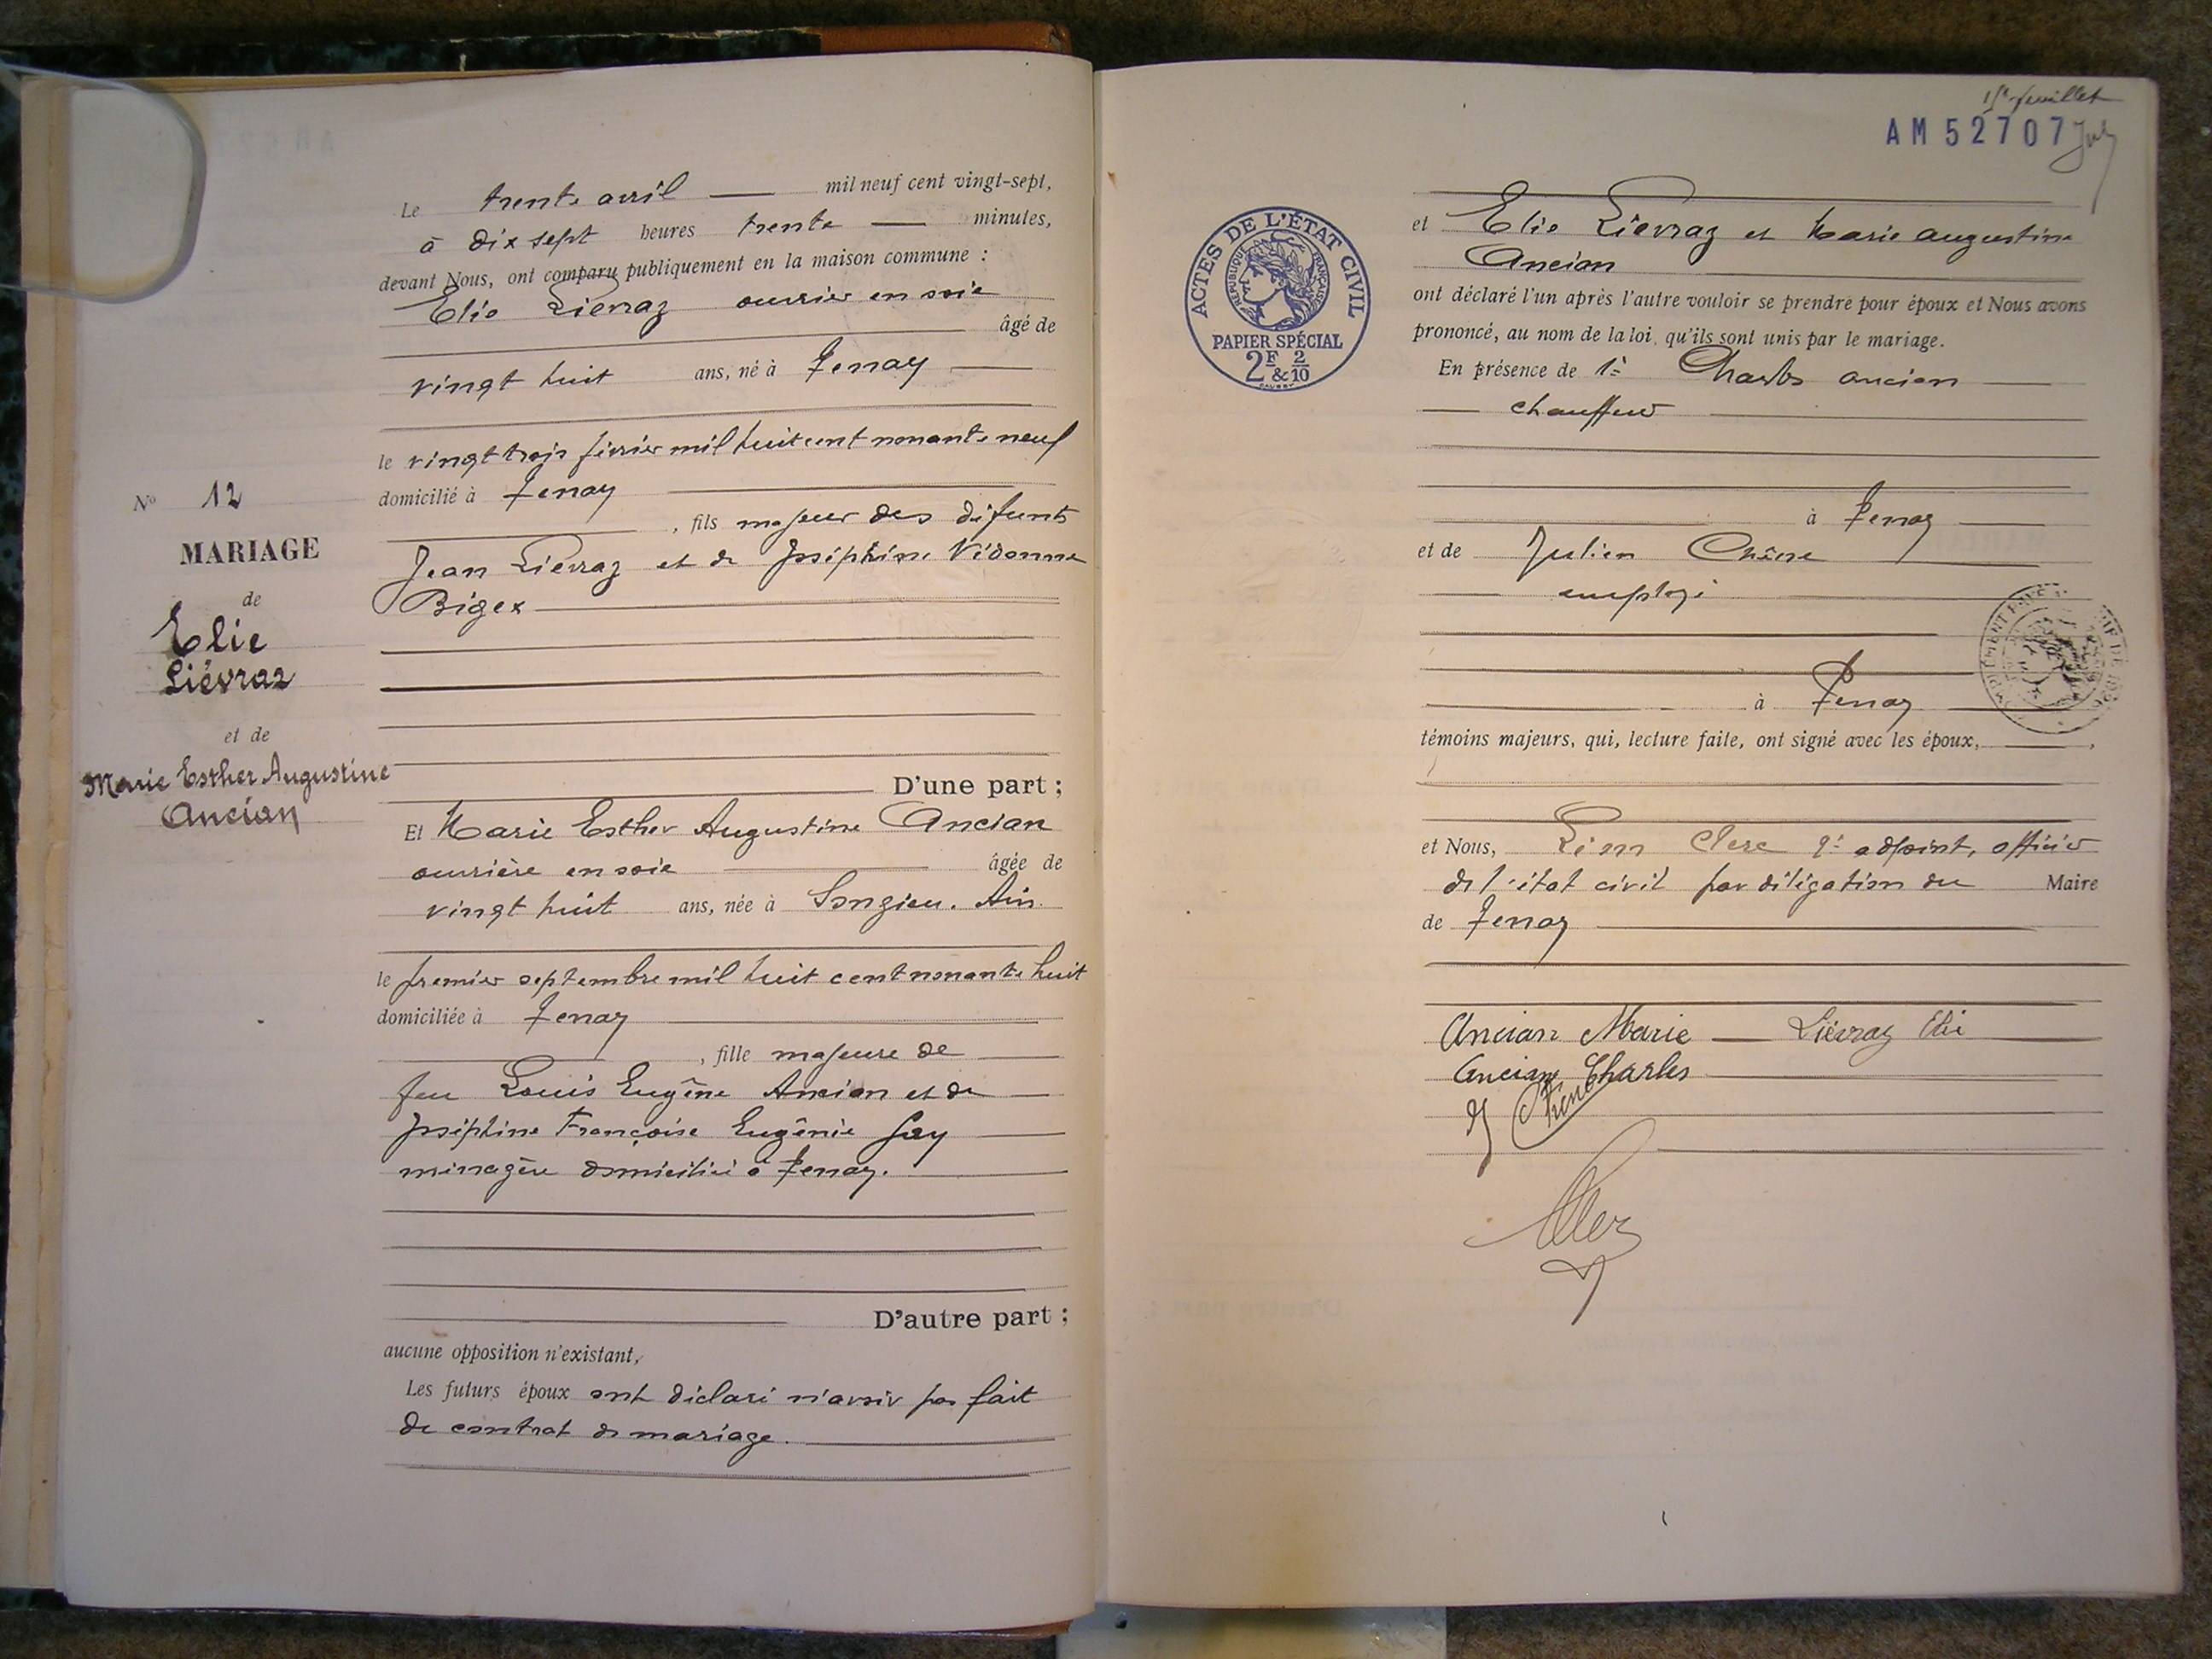 Le trente avril mil neuf cent vingt-sept,
à dix sept heures trente minutes,
devant Nous, ont comparu publiquement en la maison commune :
Elie Liévraz ouvrier en soie
âgé de
vingt huit ans, né à Tenay
le vingt trois février mil huit cent nonante neuf
domicilié à Tenay
, fils majeur des défunts
Jean Liévraz et de Joséphine Vidonne
Bigex
Nº 12
MARIAGE
de
Elie
Liévraz
et de
Marie Esther Augustine
Ancian
D'une part ;
Et Marie Esther Augustine Ancian
ouvrière en soie âgée de
vingt huit ans, née à Songieu. Ain.
le premier septembre mil huit cent nonante huit
domiciliée à Tenay
, fille majeure de
feu Louis Eugène Ancian et de
Joséphine Françoise Eugénie Gay
ménagère domiciliée à Tenay.
D'autre part ;
aucune opposition n'existant,
Les futurs époux ont déclaré n'avoir pas fait
de contrat de mariage.
feuillet
AM 52707
ACTES DE L'ÉTAT CIVIL
RÉPUBLIQUE FRANÇAISE
PAPIER SPÉCIAL
2F & 2/10
et Elie Liévraz et Marie Augustine
Ancian
ont déclaré l'un après l'autre vouloir se prendre pour époux et Nous avons
prononcé, au nom de la loi, qu'ils sont unis par le mariage.
En présence de 1º Charles Ancian
chauffeur
à Tenay
et de Julien Chêne
employé
à Tenay
témoins majeurs, qui, lecture faite, ont signé avec les époux,
et Nous, Léon Clerc adjoint, officier
de l'état civil par délégation du Maire
de Tenay
Ancian Marie Liévraz Elie
Ancian Charles
J Chêne